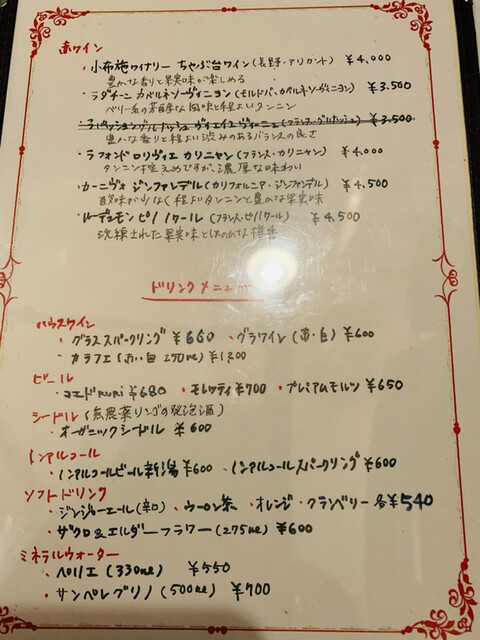 赤ワイン
・小布施ワイナリー ちゃぶ台ワイン(長野・アリカント) ¥4,000
豊かな香りと果実味が楽しめる
・ラダチーニ カベルネソーヴィニヨン(モルドバ・カベルネソーヴィニヨン) ¥3,500
ベリー系の芳醇な風味と程よいタンニン
¥3,500
豊かな香りと程よい渋みのあるバランスの良さ
・ラフォンドロリヴィエ カリニャン(フランス・カリニャン) ¥4,000
タンニン控えめですが、濃厚な味わい
・カーニヴォ ジンファンデル(カリフォルニア・ジンファンデル) ¥4,500
酸味が少なく程よいタンニンと豊かな果実味
ピノノワール(フランス・ピノノワール) ¥4,500
洗練された果実味とほのかな樽香
ドリンクメニュー
ハウスワイン
・グラススパークリング ¥660 ・グラスワイン(赤・白) ¥600
・カラフェ(赤・白 250ml) ¥1,300
ビール
・コエドRURI ¥680 ・モレッティ ¥700 ・プレミアムモルツ ¥650
シードル(無農薬リンゴの発泡酒)
・オーガニックシードル ¥600
ノンアルコール
・ノンアルコールビール新潟 ¥600 ・ノンアルコールスパークリング ¥600
ソフトドリンク
・ジンジャーエール(辛口) ・ウーロン茶 ・オレンジ ・クランベリー 各¥540
・ザクロ&エルダーフラワー(275ml) ¥600
ミネラルウォーター
・ペリエ(330ml) ¥550
・サンペレグリノ(500ml) ¥700